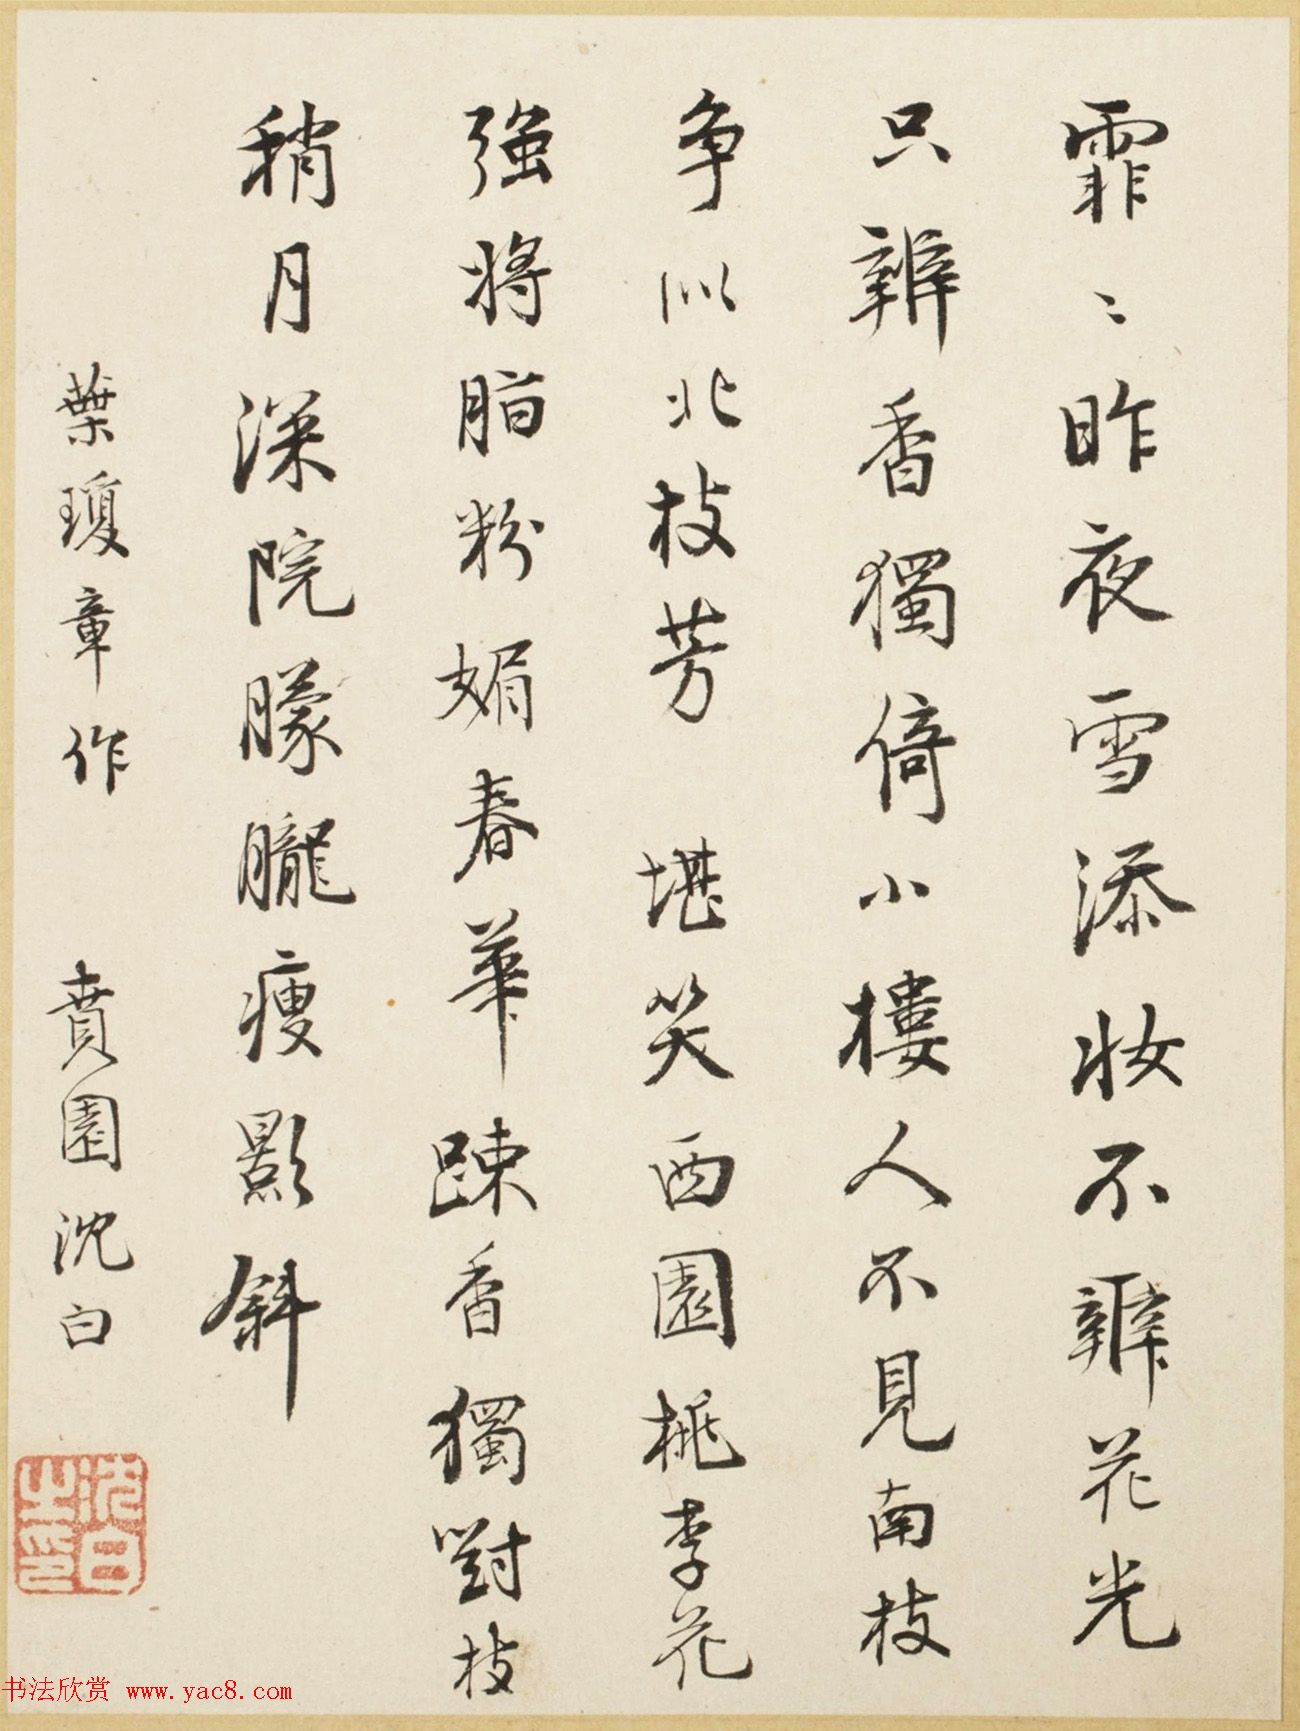 霏〻昨夜雪添妝不辨花光
只辨香獨倚小樓人不見南枝
争似北枝芳 堪笑西園桃李花
強將脂粉媚春華踈香獨對枝
稍月深院朦朧瘦影斜
葉瓊章作 賁園沈白
沈白之印
书法欣赏 www.yac8.com